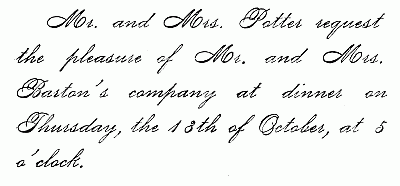 Mr. and Mrs. Potter request
the pleasure of Mr. and Mrs.
Barton's company at dinner on
Thursday, the 13th of October, at 5
o'clock.